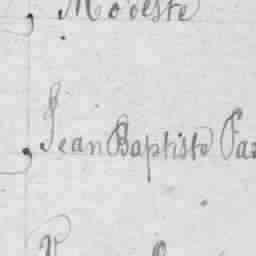 Modeste
Jean Baptiste